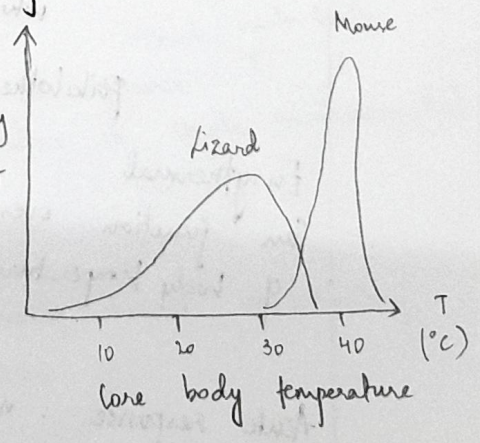 Mouse
Lizard
10 20 30 40
T
(°C)
Core body temperature